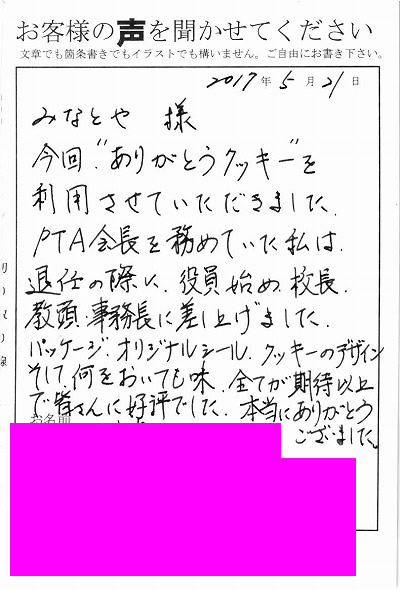 お客様の声を聞かせてください
文章でも箇条書きでもイラストでも構いません。ご自由にお書き下さい。
2017年5月21日
みなとや 様
今回"ありがとうクッキー"を
利用させていただきました.
PTA会長を務めていた私は.
退任の際に、役員始め、校長.
教頭.事務長に差し上げました.
パッケージ.オリジナルシール.クッキーのデザイン
そして.何をおいても味.全てが期待以上
で皆さんに好評でした.本当にありがとう
ございました。
お名前
切り取り線